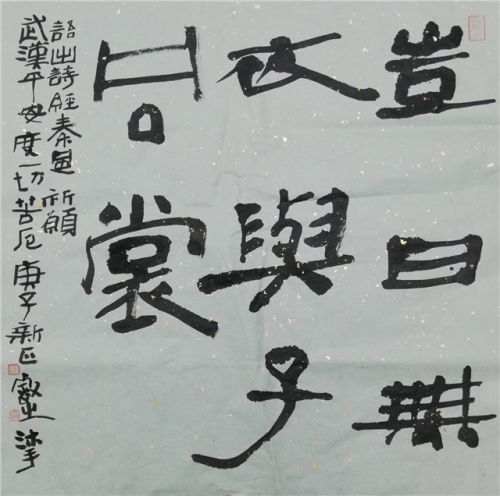 豈曰無
衣與子
同裳
語出詩經秦風 祈願
武漢平安度一切苦厄 庚子新正